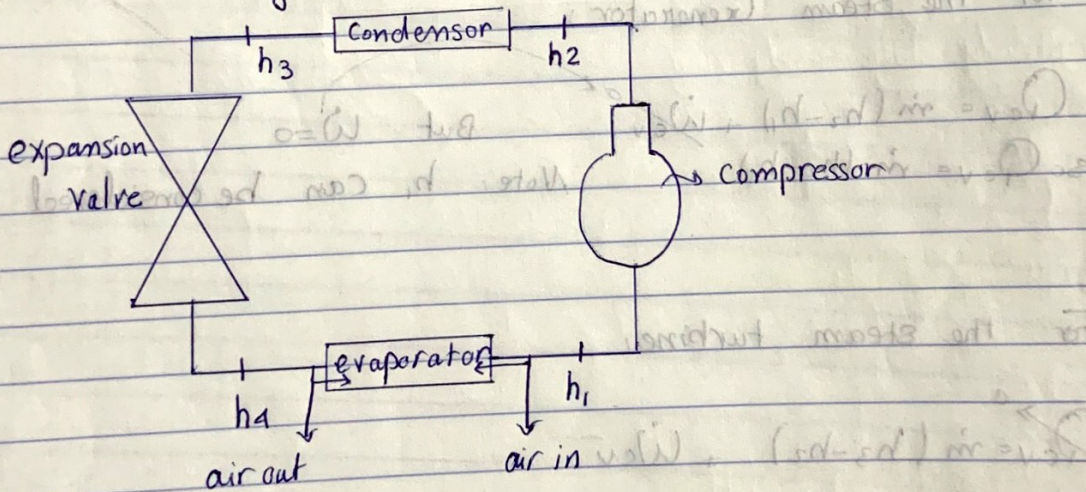 Condensor
h3
h2
expansion
valve
compressor
evaporator
h4
h1
air out
air in